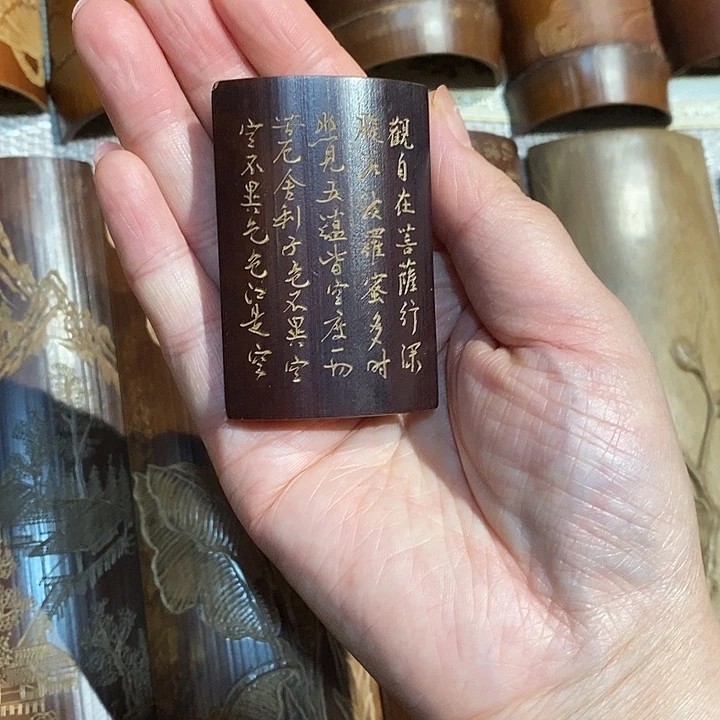 觀自在菩薩行深
般若波羅蜜多时
照見五蘊皆空度一切
苦厄舍利子色不異空
空不異色色即是空